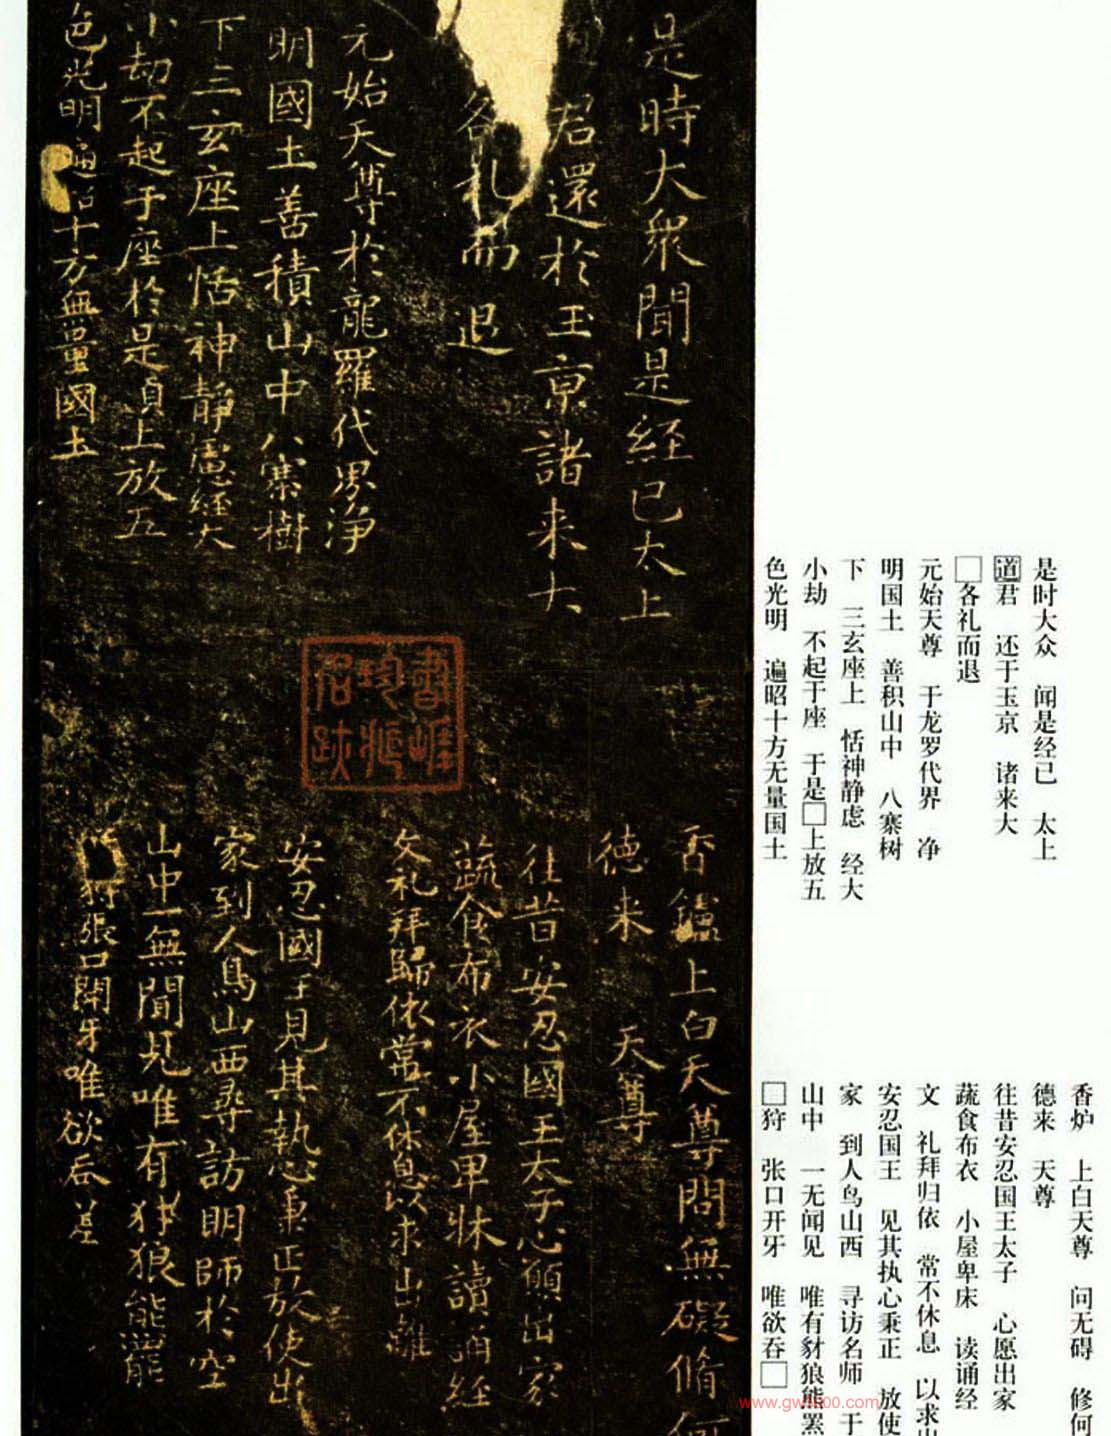 是時大衆聞是経已太上
君還於玉京諸来大
各礼而退
元始天尊於龍羅代界浄
明國土善積山中八寨樹
下三玄座上恬神静慮経大
小劫不起于座於是貞上放五
色光明遍昭十方無量國土
香鑪上白天尊問無礙脩何
德来 天尊
往昔安忍國王太子心願出家
蔬食布衣小屋卑牀讀誦経
文礼拜歸依常不休息以求出離
安忍國王見其執心秉正放使出
家到人鳥山西尋訪明師於空
山中一無聞見唯有犲狼熊羆
狩張口開牙唯欲吞
是时大众 闻是经已 太上
道君 还于玉京 诸来大
□各礼而退
元始天尊 于龙罗代界 净
明国土 善积山中 八寨树
下 三玄座上 恬神静虑 经大
小劫 不起于座 于是□上放五
色光明 遍昭十方无量国土
香炉 上白天尊 问无碍 修何
德来 天尊
往昔安忍国王太子 心愿出家
蔬食布衣 小屋卑床 读诵经
文 礼拜归依 常不休息 以求出
安忍国王 见其执心秉正 放使
家 到人鸟山西 寻访名师 于
山中 一无闻见 唯有豺狼熊罴
□狩 张口开牙 唯欲吞□
www.gw5000.com